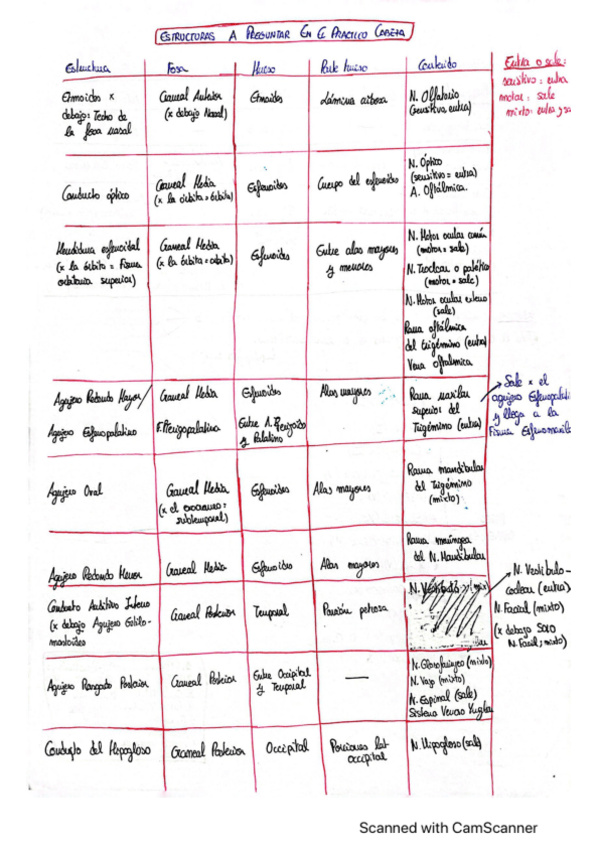 ESTRUCTURAS A PREGUNTAR EN EL PRACTICO CABEZA
Estructura Fosa Hueso Parte hueso Contenido
Etmoides x debajo = Techo de la fosa nasal
Craneal Anterior (x debajo Nasal)
Etmoides
Lámina cribosa
N. Olfatorio (sensitivo, entra)
Conducto óptico
Craneal Media (x la órbita = órbita)
Esfenoides
Cuerpo del esfenoides
N. Óptico (sensitivo = entra)
A. Oftálmica.
Hendidura esfenoidal (x la órbita = Fisura orbitaria superior)
Craneal Media (x la órbita = órbita)
Esfenoides
Entre alas mayores y menores
N. Motor ocular común (motor = sale)
N. Troclear o patético (motor = sale)
N. Motor ocular externo (sale)
Rama oftálmica del trigémino (entra)
Vena oftalmica
Agujero Redondo Mayor/
Craneal Media
Esfenoides
Alas mayores
Rama maxilar superior del Trigémino (entra)
Agujero Esfenopalatino
F. Pterigopalatina
Entre A. Pterigoides y Palatino
Agujero Oval
Craneal Media (x el exocraneo = subtemporal)
Esfenoides
Alas mayores
Rama mandibular del Trigémino (mixto)
Agujero Redondo Menor
Craneal Media
Esfenoides
Alas mayores
Rama meníngea del N. Mandibular
Conducto Auditivo Interno (x debajo Agujero Estilo-mastoideo
Craneal Posterior
Temporal
Porción petrosa
Agujero Rasgado Posterior
Craneal Posterior
Entre Occipital y Temporal
—
N. Glosofaríngeo (mixto)
N. Vago (mixto)
N. Espinal (sale)
Sistema Venoso Yugular
Conducto del Hipogloso
Craneal Posterior
Occipital
Porciones lat occipital
N. Hipogloso (sale)
Entra o sale:
sensitivo: entra
motor: sale
mixto: entra y sa
Sale x el
agujero Esfenopalati
y llega a la
Fisura Esfenomaxila
N. Vestibulo-
coclear (entra)
N. Facial (mixto)
(x debajo SOLO
N. Facial; mixto)
Scanned with CamScanner